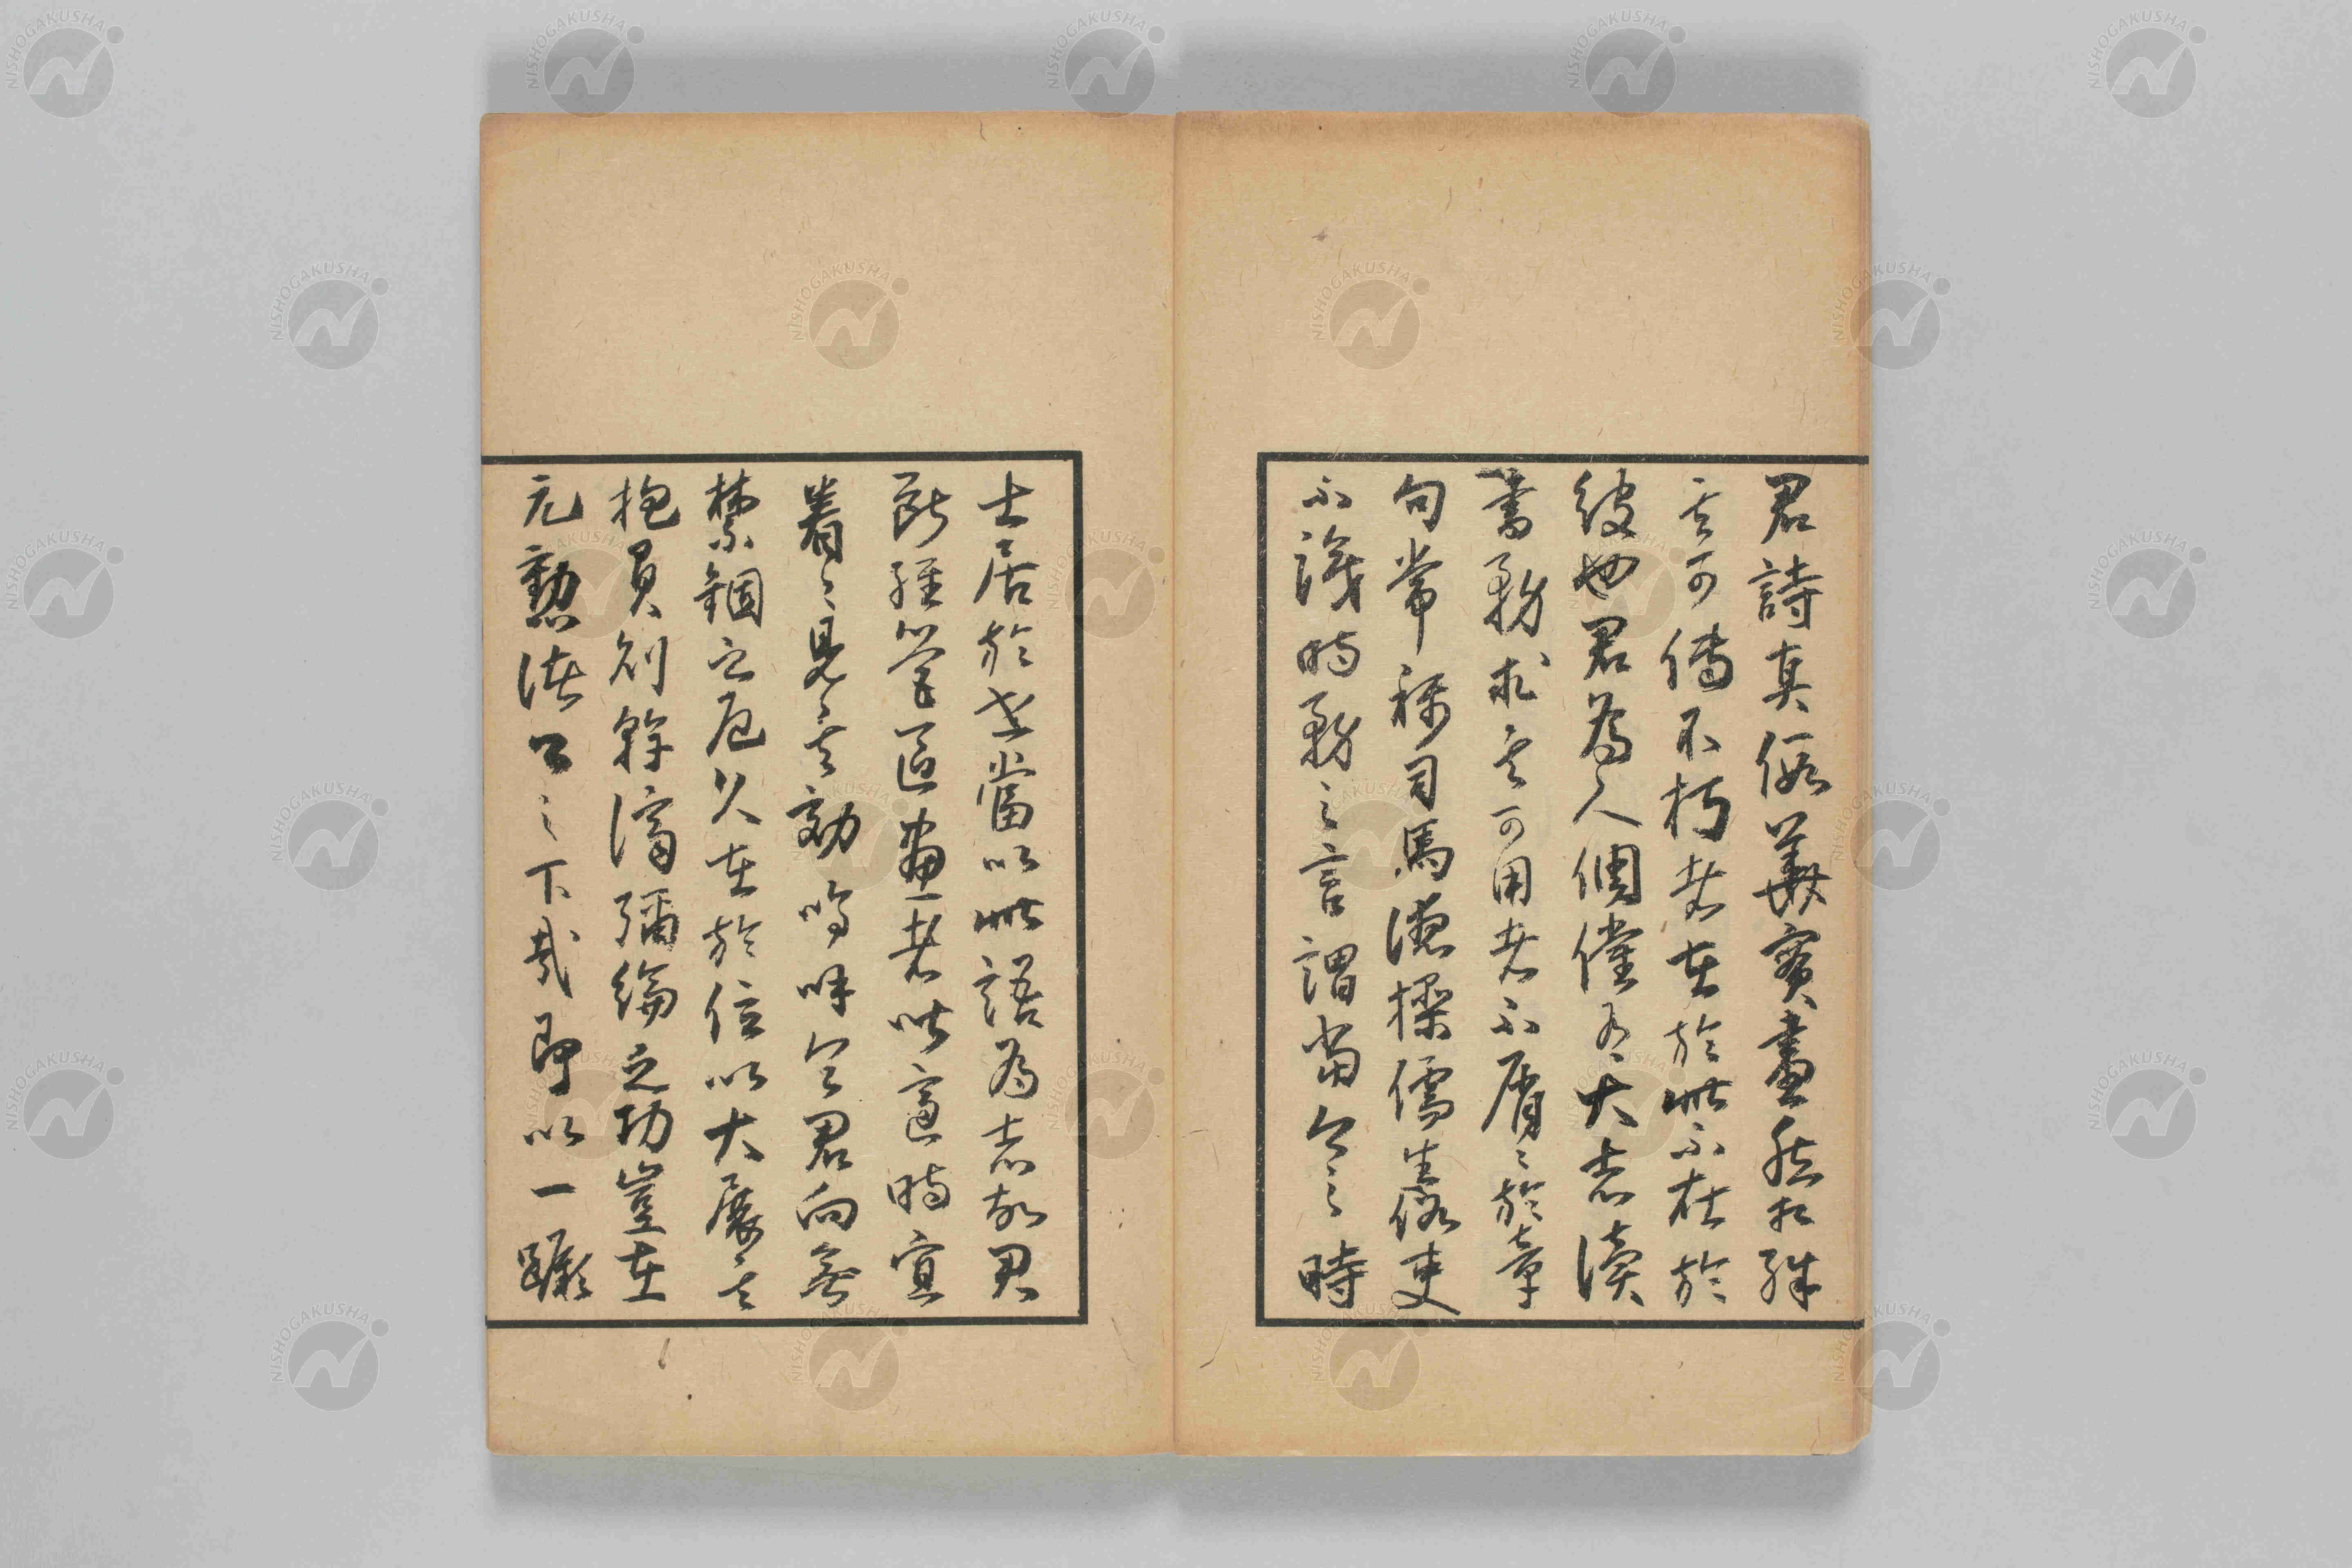 君詩真假叢實畫然相殊
其可傳不朽者在於此不在於
彼也君為人倜儻有大志讀
書務求其可用者不屑々於章
句常稱司馬德操儒生俗吏
不識時務之言謂當今之時
士居於世當以此語為志故君
所經營區畫者皆適時宜
着々見其効嗚呼令君向無
禁錮之厄久在於位以大展其
抱負則幹濟彌綸之功豈在
元勳諸公之下哉即以一蹶
NISHOGAKUSHA